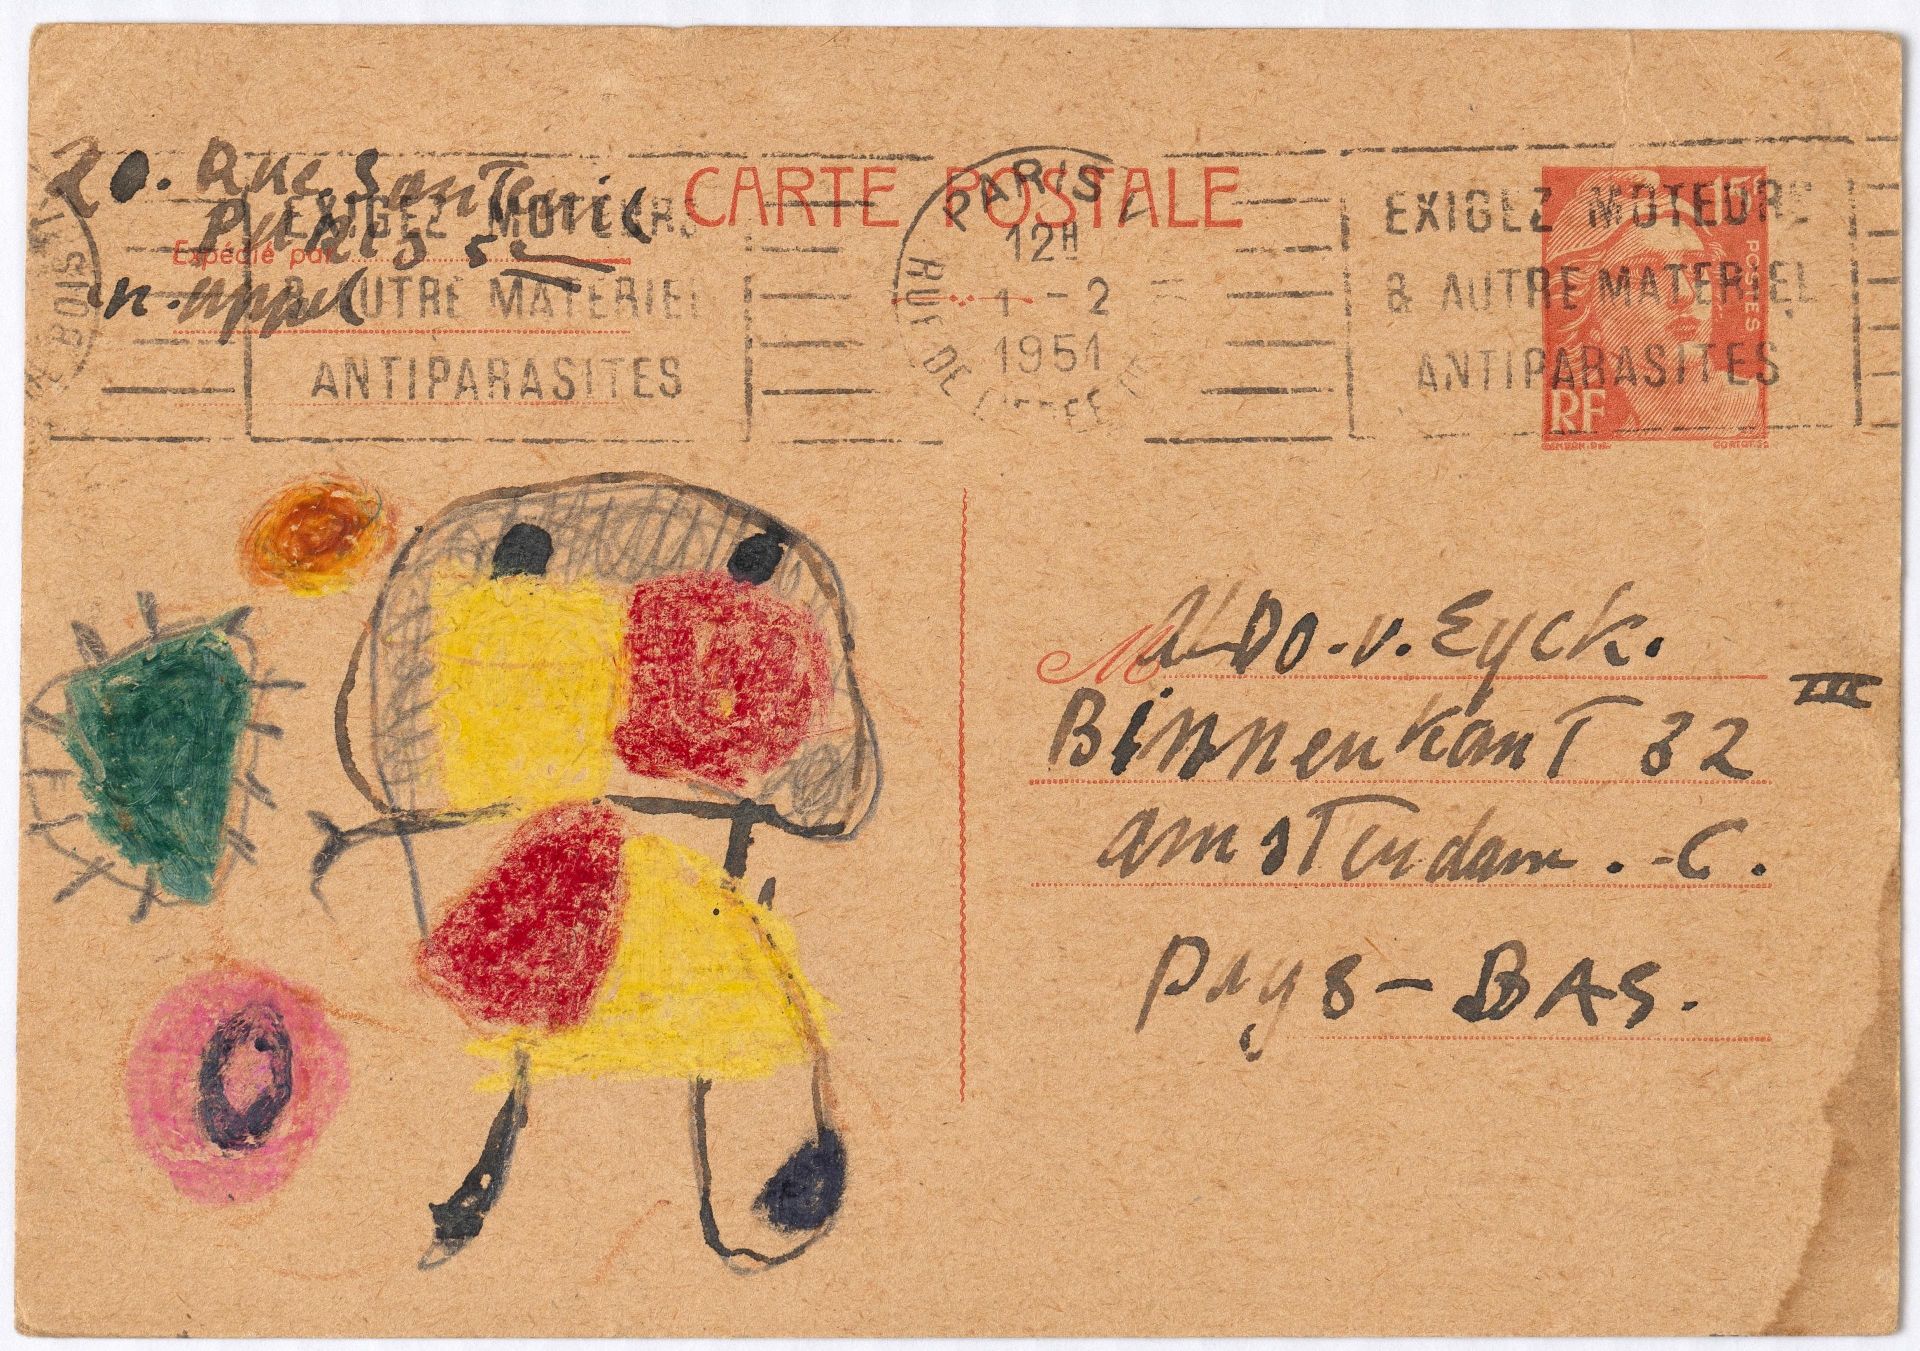 20. Rue Santeuil
Paris 5
n. appel
Expédié par
CARTE POSTALE
EXIGEZ MOTEURS
& AUTRE MATERIEL
ANTIPARASITES
PARIS
12H
1 - 2
1951
RUE DE
EXIGEZ MOTEURS
& AUTRE MATERIEL
ANTIPARASITES
15F
POSTES
RF
BOIS
M Aldo. v. Eyck.
Binnenkant 32 III
Amsterdam. -C.
Pays-BAS.